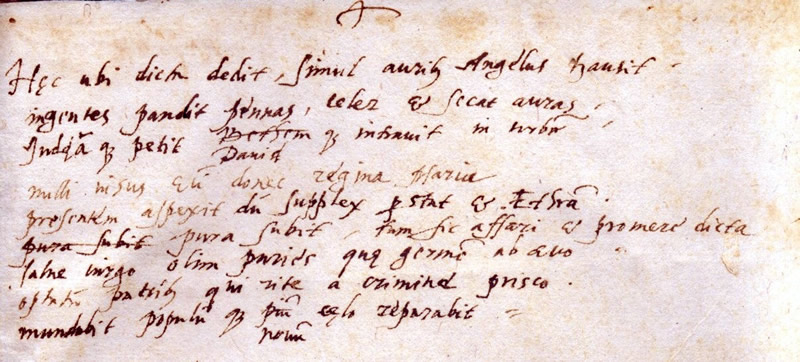 Hęc ubi dicta dedit, simul aurib Angelus hausit
ingentes pandit pennas, celer & secat auras
Judęā q petit Bethlem q intravit in urbē
David
nulli visus donec regina Marie
presentem aspexit dū supplex pstat & Æthrā
pura subit pura subit, tum sic affari & promere dicta
salve virgo olim paries quę germē ab ęvo
optatū patrib qui rite a crimine prisco
mundabit populū q piū cęlo reparabit
novū